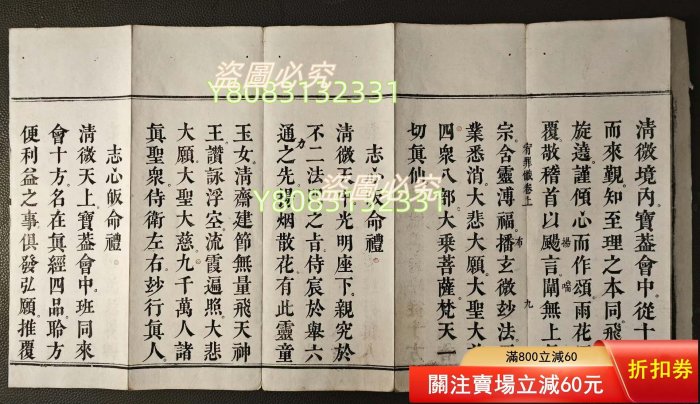 清微境內寶蓋會中從十
而來覲知至理之本同飛
旋遶謹傾心而作頌雨花
覆敬稽首以颺言闡無上
宥罪懺卷上 布 九
宗含靈溥福播玄微玅法
業悉消大悲大願大聖大
四衆八部大乘菩薩梵天一
切眞仙
志心命禮
清微天光明座下親究於
不二法之旨侍宸於舉六
通之先揚烟散花有此靈童
玉女清齋建節無量飛天神
王讚詠浮空流霞遍照大悲
大願大聖大慈九千萬人諸
眞聖衆侍衛左右玅行眞人
志心皈命禮
清微天上寶蓋會中班同來
會十方名在眞經四品聆方
便利益之事俱發弘願推覆
盜圖必究
盜圖必究
Y8083132331
Y8083132331
盜圖必究
Y8083132331
滿800立減60
關注賣場立減60元
折扣券